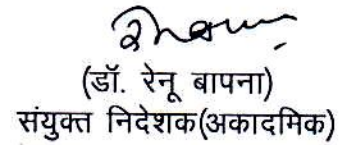 (डॉ. रेनू बापना)
संयुक्त निदेशक(अकादमिक)